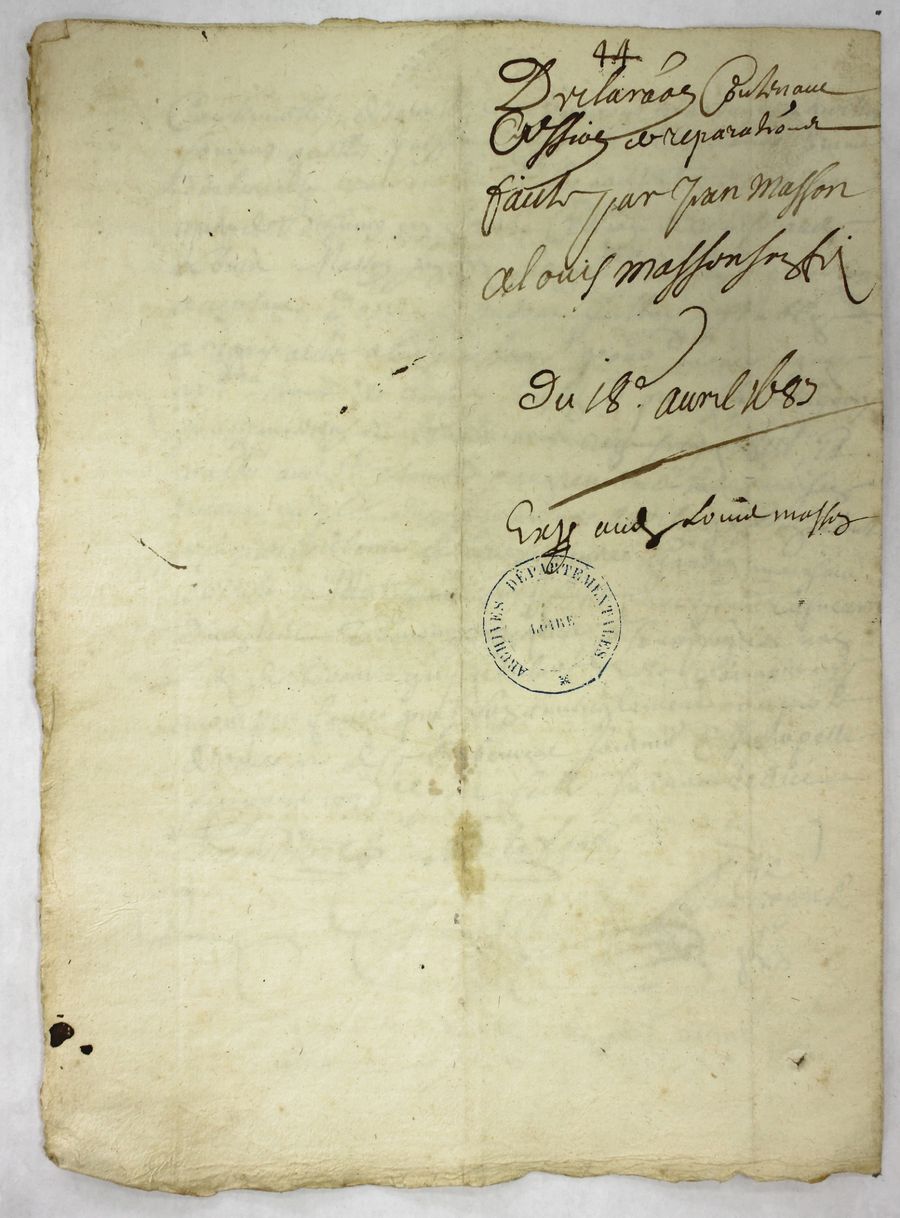 44
Declaraõn Contenant
Cession de reparations
faicte par Jean Masson
a Louis Masson son fil
Du 18e. avril 1683
Expe aud Louis masson
ARCHIVES DÉPARTEMENTALES
LOIRE